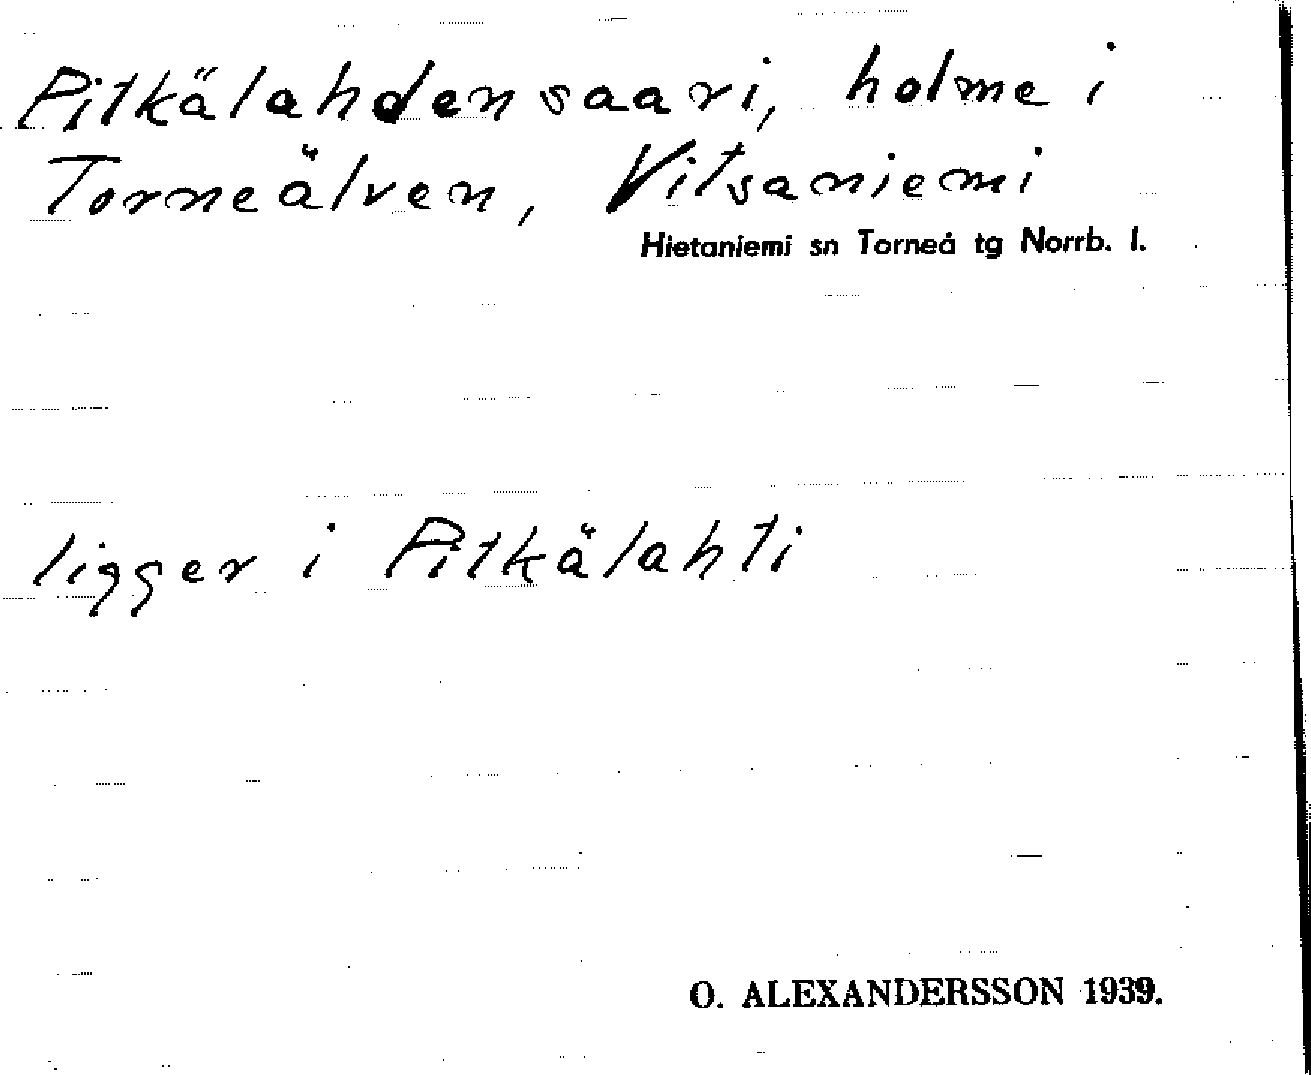 Pitkälahdensaari, holme i
Torneälven, Vitsaniemi
Hietaniemi sn Torneå tg Norrb. l.
ligger i Pitkälahti
O. ALEXANDERSSON 1939.